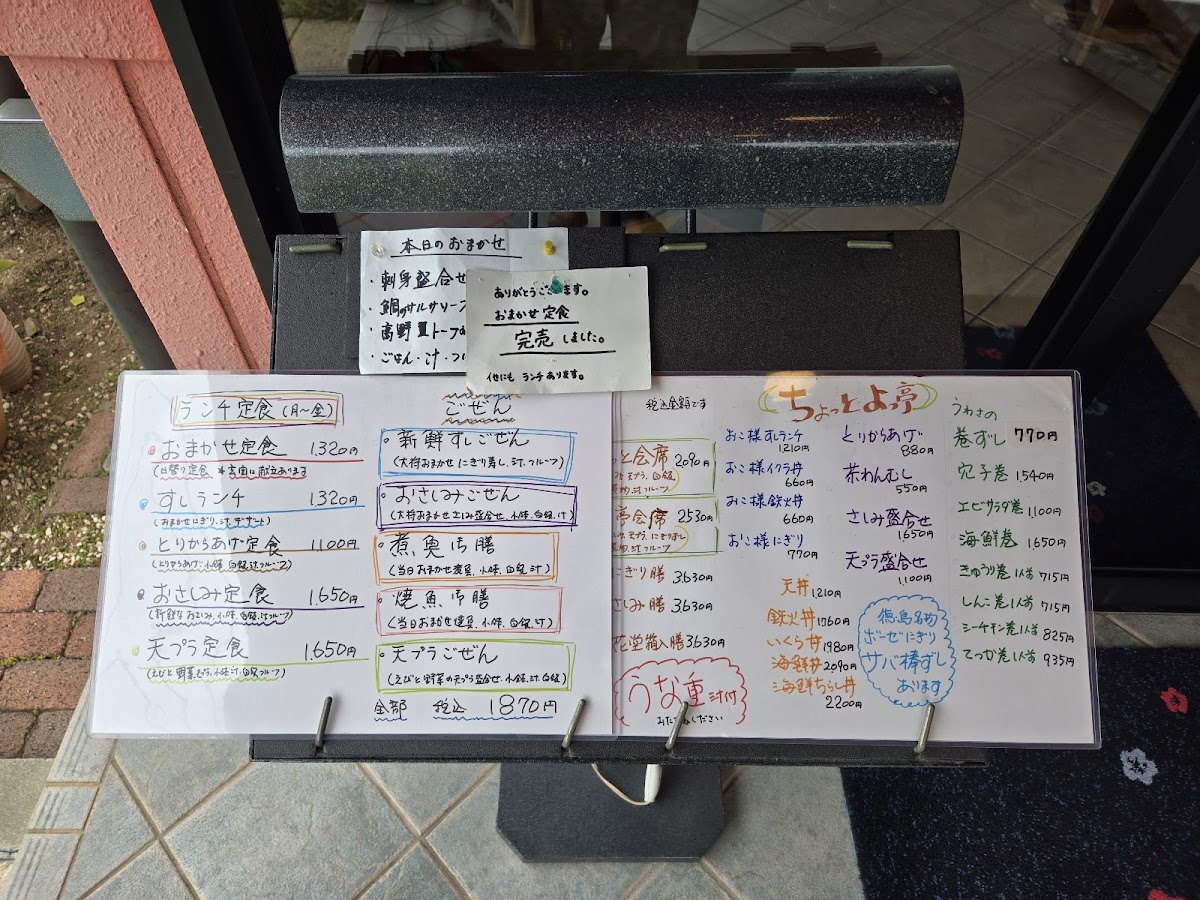 本日のおまかせ
・刺身盛合せ
・鯛のサルサソース
・高野豆
・ごはん・汁・フル
ありがとうございます。
おまかせ定食
完売しました。
他にもランチあります。
ランチ定食(月〜金)
おまかせ定食 1,320円
すしランチ 1,320円
(おまかせにぎり、汁、デザート)
とりからあげ定食 1,100円
(とりからあげ、小鉢、白飯、汁、フルーツ)
おさしみ定食 1,650円
(新鮮なおさしみ、小鉢、白飯、汁、フルーツ)
天プラ定食 1,650円
(えびと野菜天ぷら、小鉢、汁、白飯、フルーツ)
ごぜん
・新鮮すしごぜん
(大将おまかせにぎり寿し、汁、フルーツ)
・おさしみごぜん
(大将おまかせさしみ盛合せ、小鉢、白飯、汁)
・煮魚御膳
(当日おまかせ煮魚、小鉢、白飯、汁)
・焼魚御膳
(当日おまかせ焼魚、小鉢、白飯、汁)
・天プラごぜん
(えびと野菜の天プラ盛合せ、小鉢、汁、白飯)
全部 税込 1870円
税込金額です
ちょっとよっ亭
っと会席 2090円
亭会席 2530円
にぎり膳 3,630円
さしみ膳 3,630円
花堂箱入膳 3,630円
うな重 汁付
おたずねください
お子様すしランチ 1,210円
お子様イクラ丼 660円
お子様鉄火丼 660円
お子様にぎり 770円
天丼 1,210円
鉄火丼 1,760円
いくら丼 1,980円
海鮮丼 2,090円
海鮮ちらし丼 2200円
とりからあげ 880円
茶わんむし 550円
さしみ盛合せ 1,650円
天プラ盛合せ 1,100円
徳島名物
ボーゼにぎり
サバ棒ずし
あります
うわさの
巻ずし 770円
穴子巻 1,540円
エビサラダ巻 1,100円
海鮮巻 1,650円
きゅうり巻1人前 715円
しんこ巻1人前 715円
シーチキン巻1人前 825円
てっか巻1人前 935円